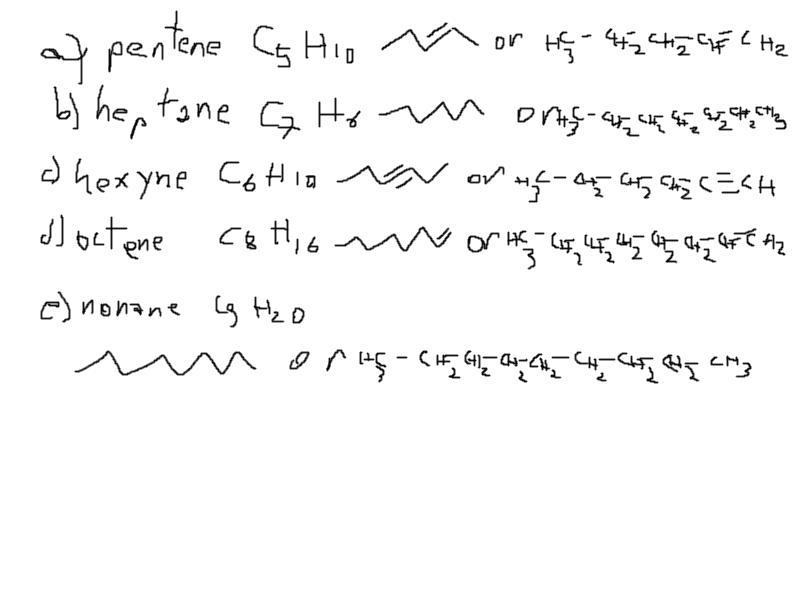 a) pentene C5H10 or H3C-CH2-CH2-CH=CH2
b) heptane C7H6 or H3C-CH2-CH2-CH2-CH2-CH2-CH3
c) hexyne C6H10 or H3C-CH2-CH2-CH2-C≡CH
d) octene C8H16 or H3C-CH2-CH2-CH2-CH2-CH2-CH=CH2
e) nonane C9H20
or H3C-CH2-CH2-CH2-CH2-CH2-CH2-CH2-CH3